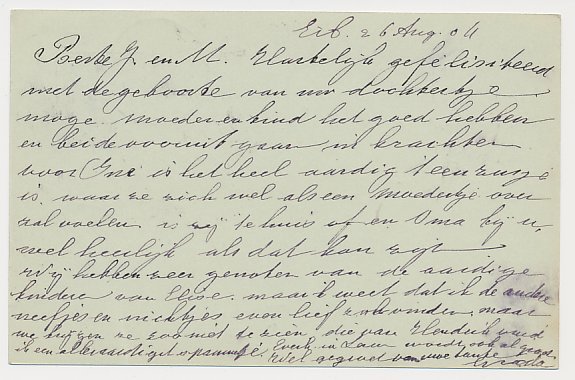 Eib. 26 Aug. 04
Beste J. en M. Hartelijk gefeliciteerd
met de geboorte van uw dochtertje
moge moeder en kind het goed hebben
en beide vooruit gaan in krachten
voor Ine is het heel aardig 't een zusje
is, waar ze zich wel als een Moedertje over
zal voelen is zij te huis of en Oma bij u,
wel heerlijk als dat kan zijn
Wij hebben zeer genoten van de aardige
kinderen van Elise. maar ik weet dat ik de andere
neefjes en nichtjes even lief zou vinden, maar
we krijgen ze zoo niet te zien die van Hendrik vind
ik een alleraardigst Evert en Laura worden ook al groot
Wel gegroet van uwe tante